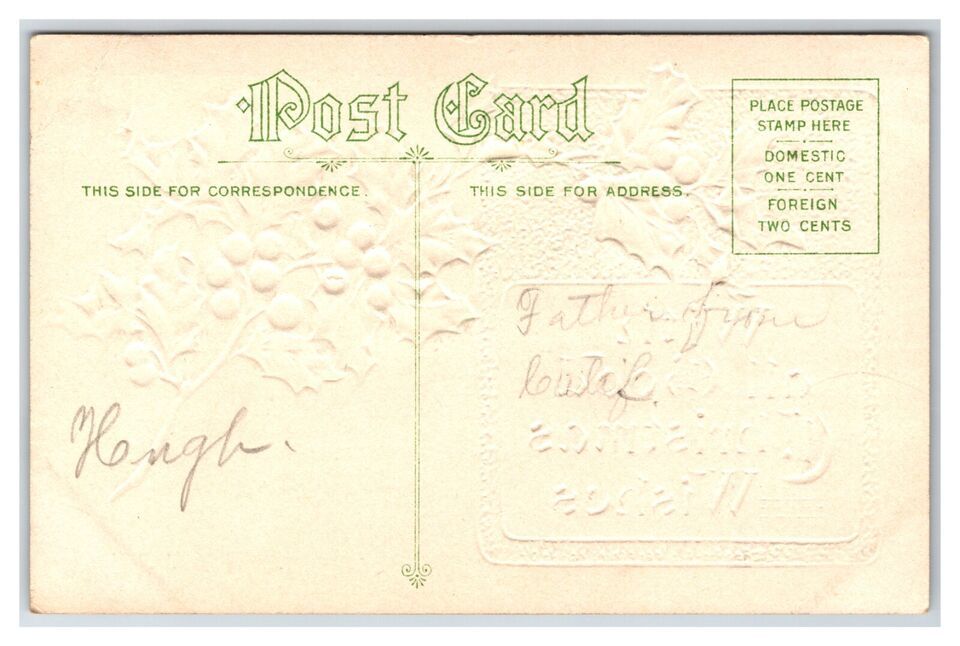 Post Card
THIS SIDE FOR CORRESPONDENCE.
THIS SIDE FOR ADDRESS.
PLACE POSTAGE
STAMP HERE
DOMESTIC
ONE CENT
FOREIGN
TWO CENTS
Hugh.
Father from
Calif.
Christmas
Wishes